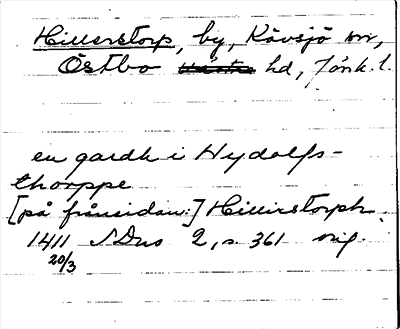 Hillerstorp, by, Kävsjö sn,
Östbo hd, Jönk. l.
en gardh i Hydolfs-
thorppe
[på frånsidan:] Hillirstorph.
1411 SDns 2, s. 361 orig.
20/3